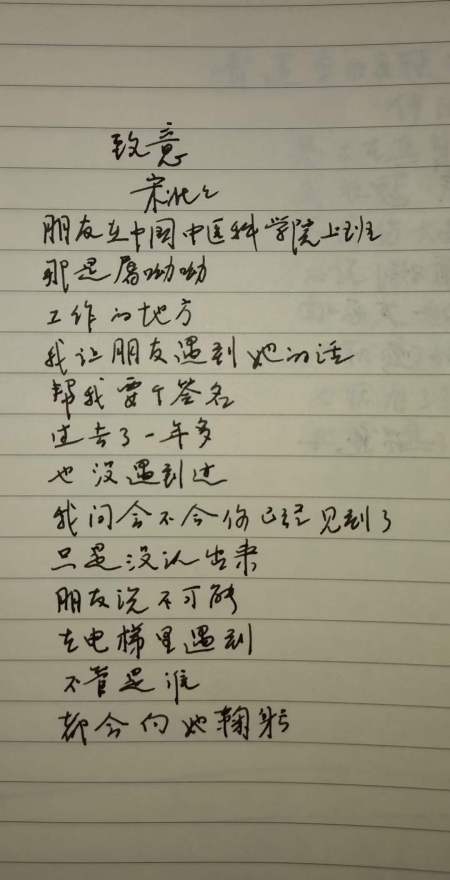 致意
宋壮壮
朋友在中国中医科学院上班
那是屠呦呦
工作的地方
我让朋友遇到她的话
帮我要个签名
过去了一年多
也没遇到过
我问会不会你已经见到了
只是没认出来
朋友说不可能
在电梯里遇到
不管是谁
都会向她鞠躬